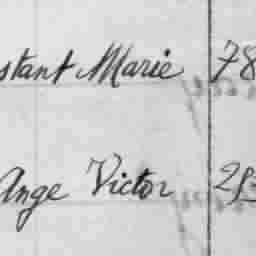 stant Marie 78
Ange Victor 25